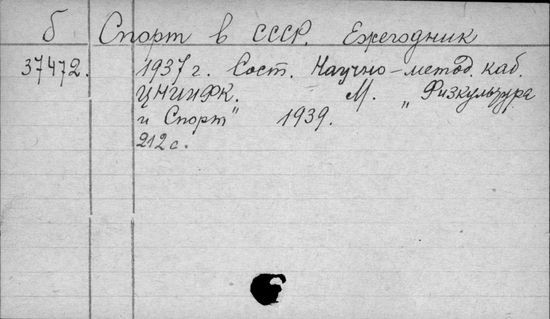 б Спорт в СССР. Ежегодник
37472. 1937 г. Сост. Научно-метод. каб.
ЦНИИФК. М. „Физкультура
и Спорт" 1939.
212 с.